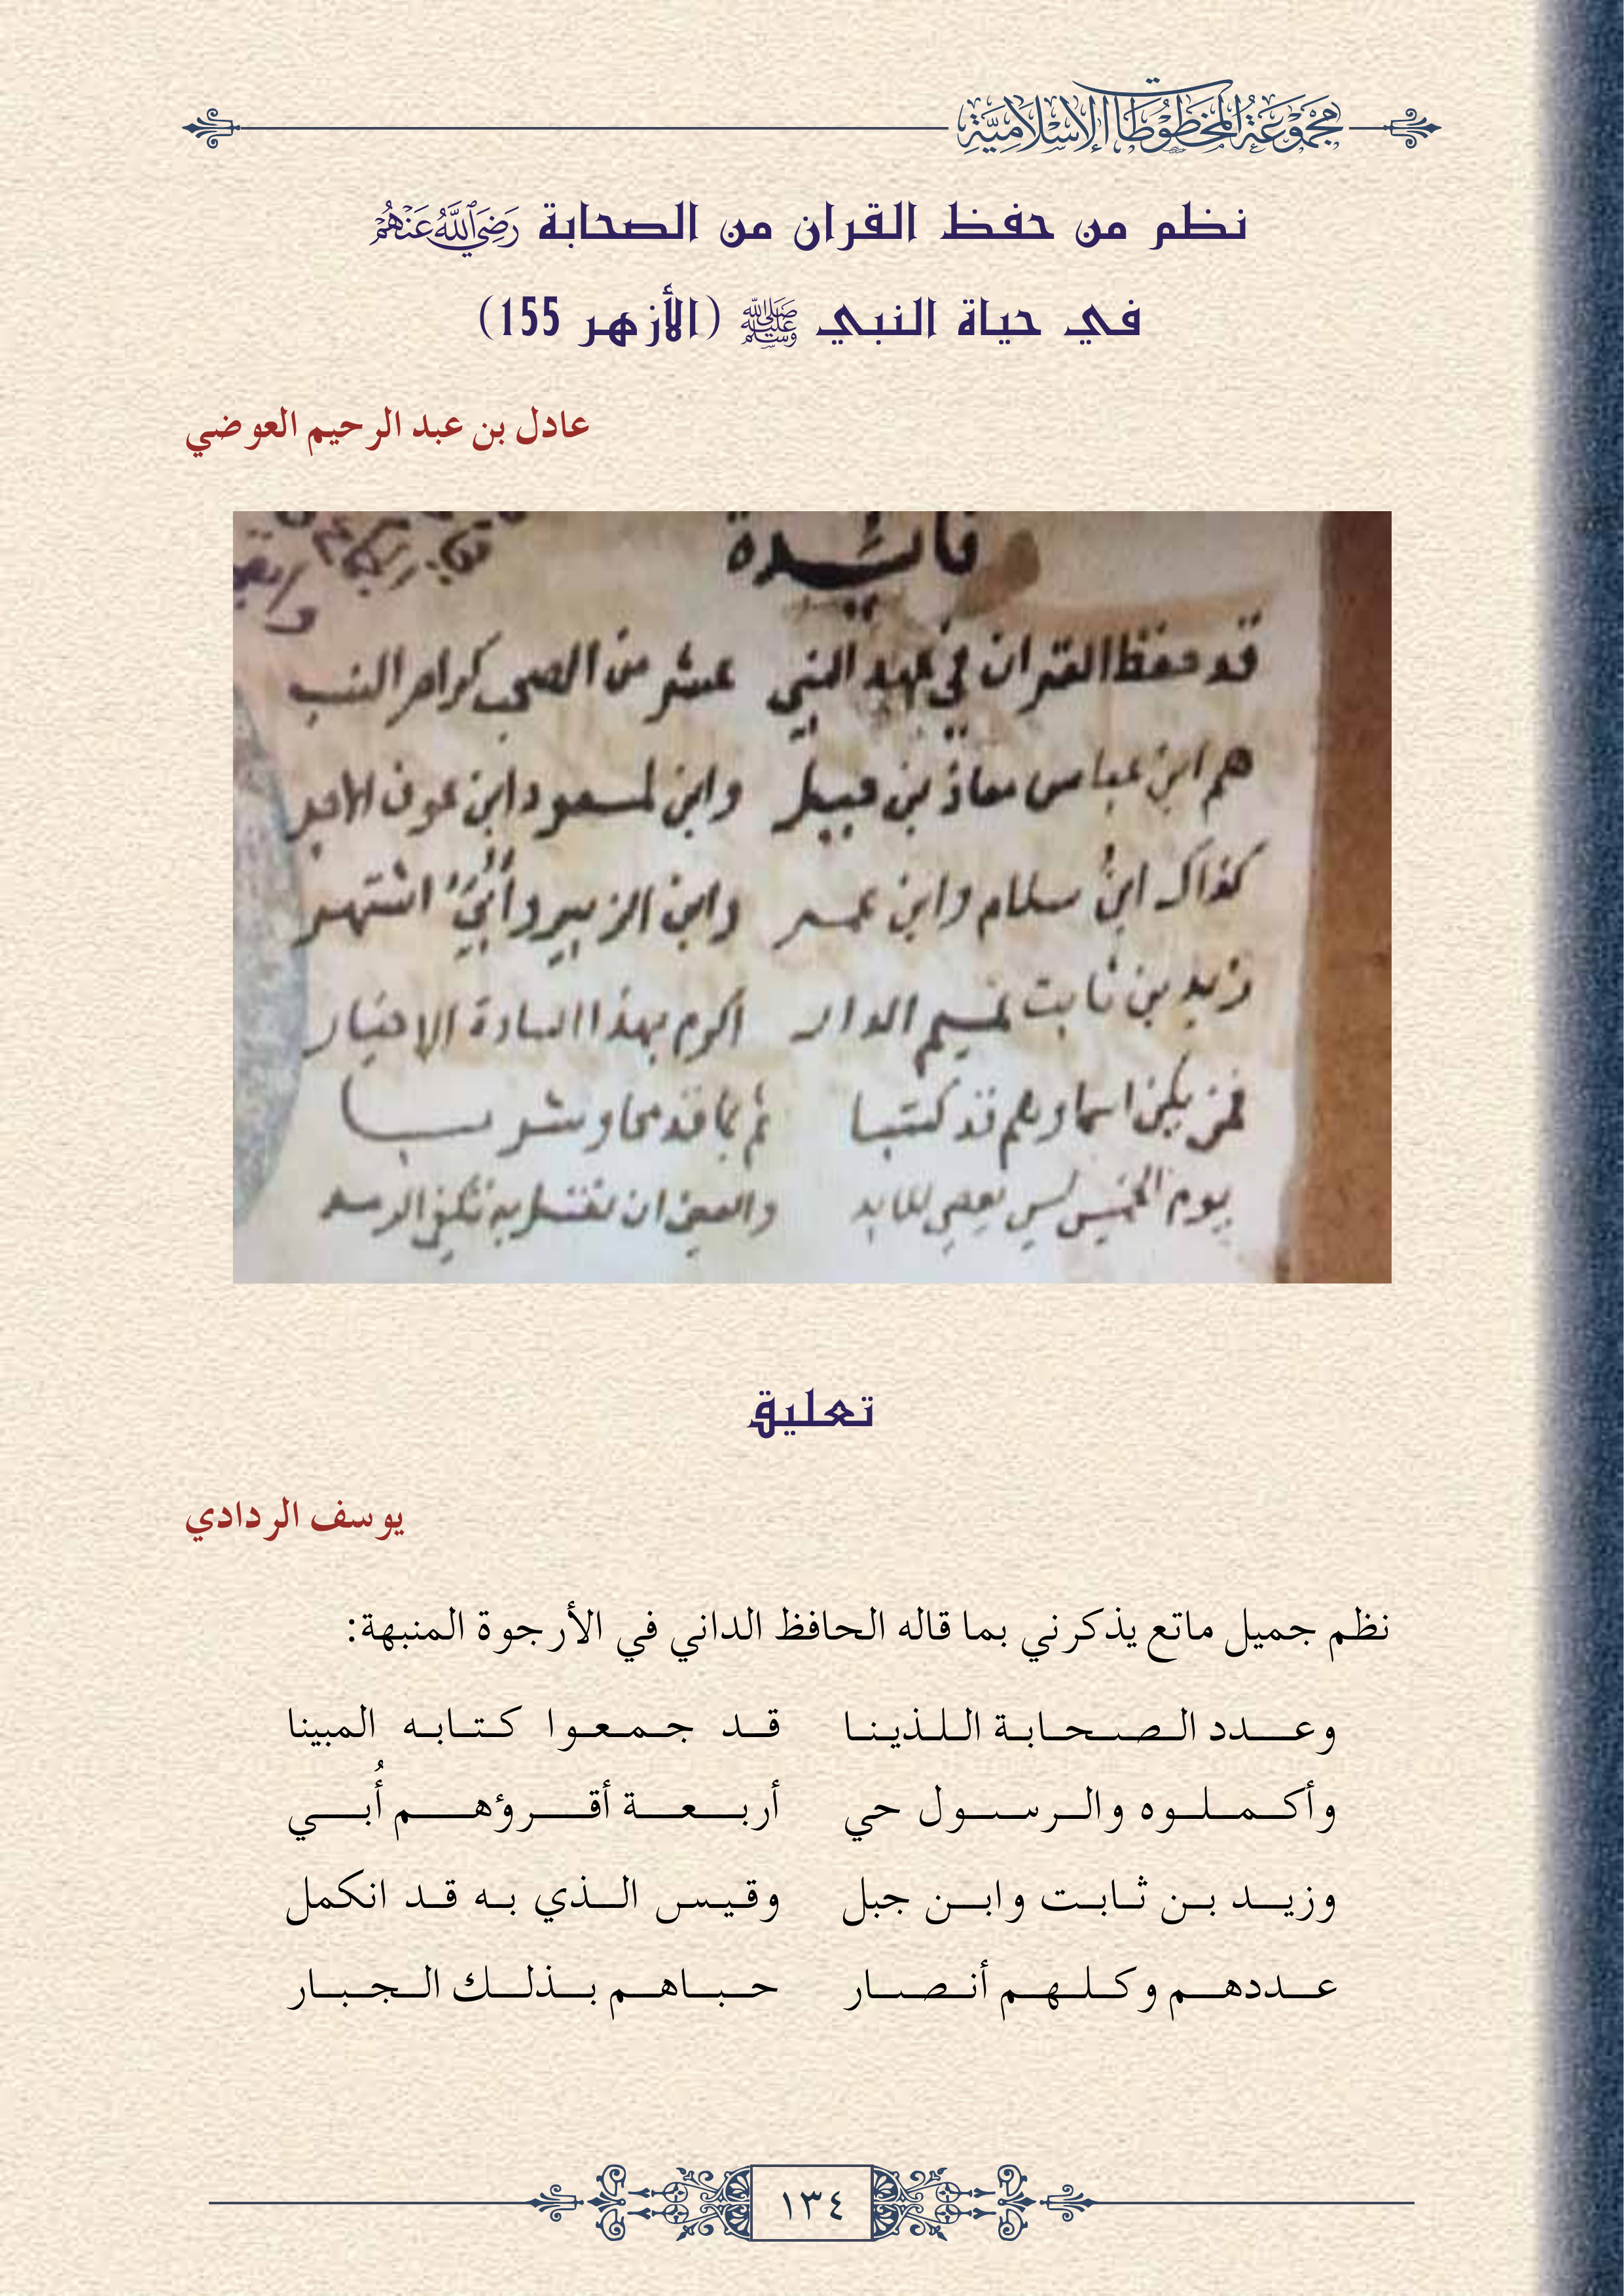 مجموعة المخطوطات الإسلامية
نظم من حفظ القران من الصحابة رَضِيَ اللَّهُ عَنْهُمْ
في حياة النبي ﷺ (الأزهر 155)
عادل بن عبد الرحيم العوضي
فائدة
قد حفظ القران في عهد النبي عشر من الصحب كرام النسب
هم ابن عباس معاذ بن جبل وابن لمسعود وابن عوف الاجل
كذاك ابن سلام وابن عمر وابن الزبير وأبيّ اشتهر
زيد بن ثابت تميم الدار أكرم بهذا السادة الاخيار
فمن يكن اسماوهم قد كتبا ثم بما قد محا وشربا
يوم الخميس ليس
تعليق
يوسف الردادي
نظم جميل ماتع يذكرني بما قاله الحافظ الداني في الأرجوة المنبهة:
وعدد الصحابة اللذينا قد جمعوا كتابه المبينا
وأكملوه والرسول حي أربعة أقرؤهم أُبي
وزيد بن ثابت وابن جبل وقيس الذي به قد انكمل
عددهم وكلهم أنصار حباهم بذلك الجبار
١٣٤